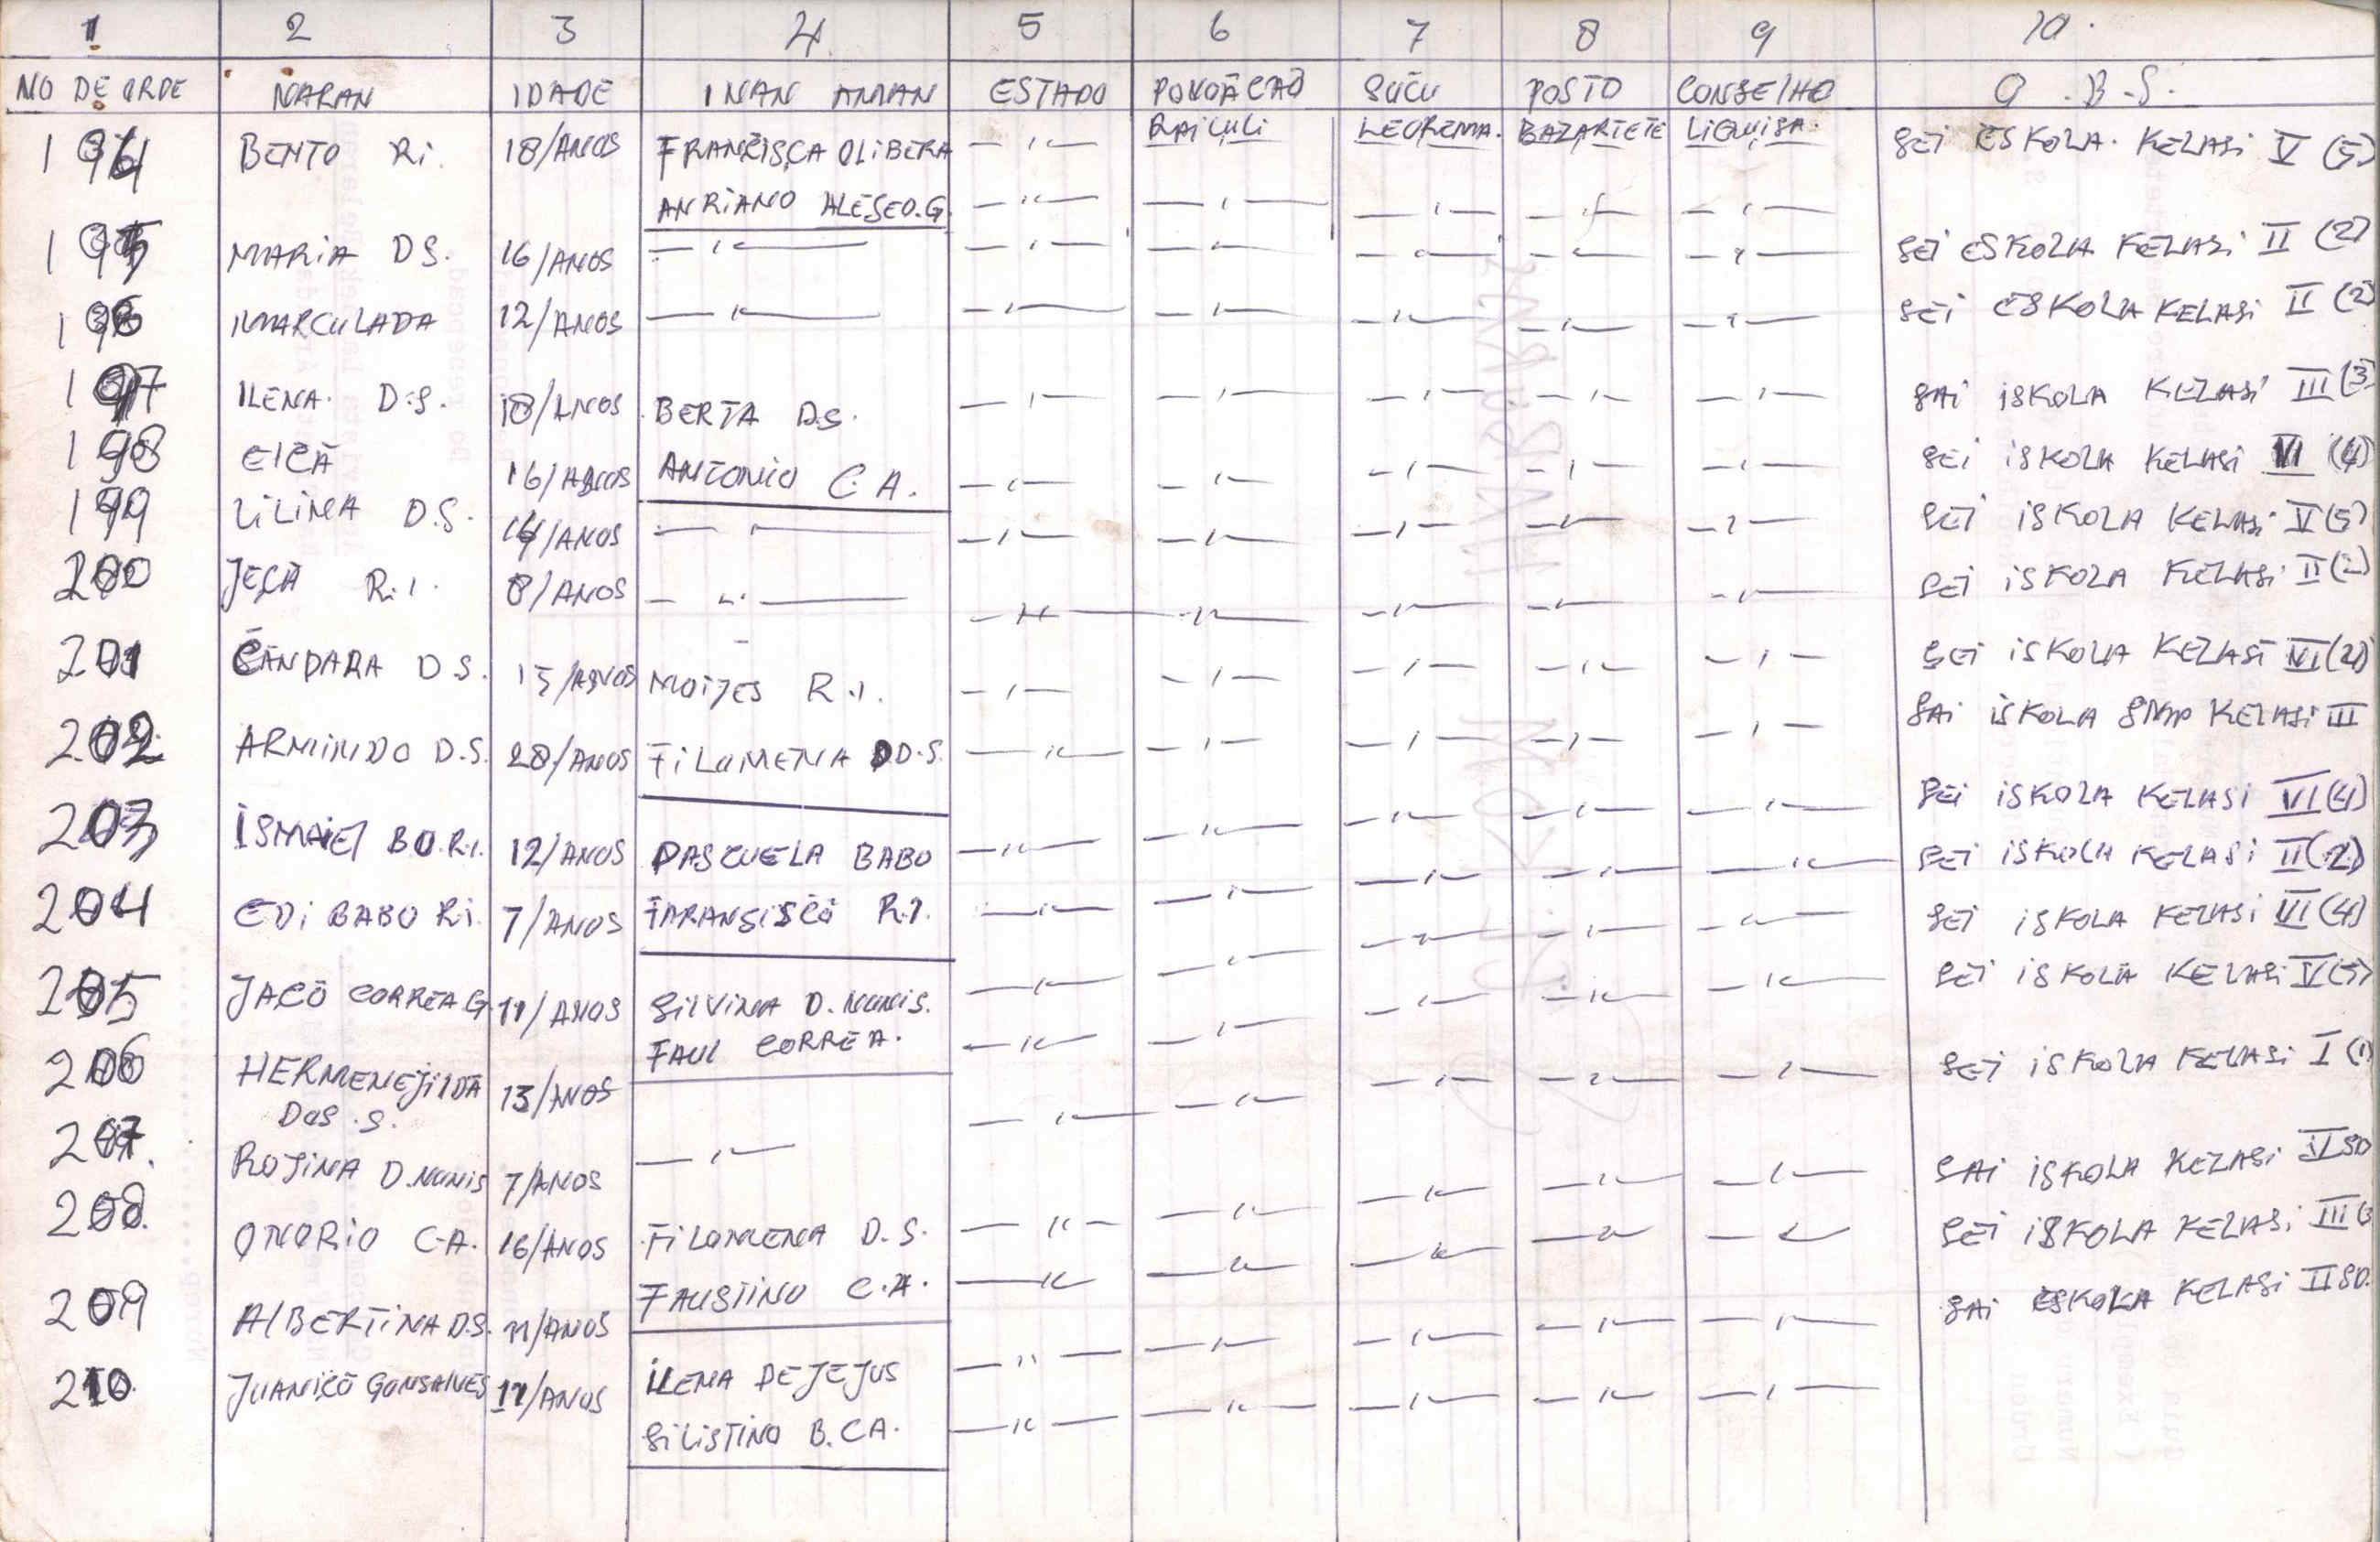 1 2 3 4 5 6 7 8 9 10.
NO DE ORDE NARAN IDADE INAN AMAN ESTADO POVOÃCAÕ SUCU POSTO CONSELHO O.B.S.
194 BENTO R.i. 18/ANOS FRANCISCA OLIBERA RAiCULi LEOREMA. BAZARTETE LIQUISA. SEi ESKOLA. KELASi V (5)
ANRiANO ALESEO.G.
195 MARIA D S. 16/ANOS SEi ESKOLA KELASi II (2)
196 IMARCULADA 12/ANOS SEi ESKOLA KELASi II (2)
197 ILENA. D.S. 18/ANOS BERTA D.S. SAi iSKOLA KELASi III (3
198 EICÃ 16/ANOS ANTONIO C.A. SEi iSKOLA KELASi VI (4)
199 LiLiNA D.S. 14/ANOS SEi iSKOLA KELASi V (5)
200 JECÃ R.I. 8/ANOS SEi iSKOLA KELASi II (2)
201 CANDARA D S. 15/ANOS MOiJES R.I. SEi iSKOLA KELASi VI (2)
202 ARMINDO D.S. 20/ANOS FiLOMENA D D.S. SAi iSKOLA SMP KELASi III
203 iSMAiEl BO.R.I. 12/ANOS PASCUELA BABO SEi iSKOLA KELASi VI (4)
204 EDi BABO R.i. 7/ANOS FARANSiSCO R.I. SEi iSKOLA KELASi II (2)
SEi iSKOLA KELASi VI (4)
205 JACÕ CORREA G. 11/ANOS SiLViNA D. NUNiS. SEi iSKOLA KELASi V (5)
FAUl CORREA.
206 HERMENEJilDA 13/ANOS SEi iSKOLA KELASi I (1)
DOS .S.
207. ROJINA D. NUNiS 7/ANOS SAi iSKOLA KELASi IV SD
208. ONORiO C.A. 16/ANOS FiLOMENA D.S. SEi iSKOLA KELASi III (3
FAUSTINO C.A.
209 AlBERTiNA D.S. 11/ANOS SAi ESKOLA KELASi II SD.
210 JUANiCO GONSALVES 11/ANOS iLENA DE JEJUS
SiLiSTiNO B.CA.